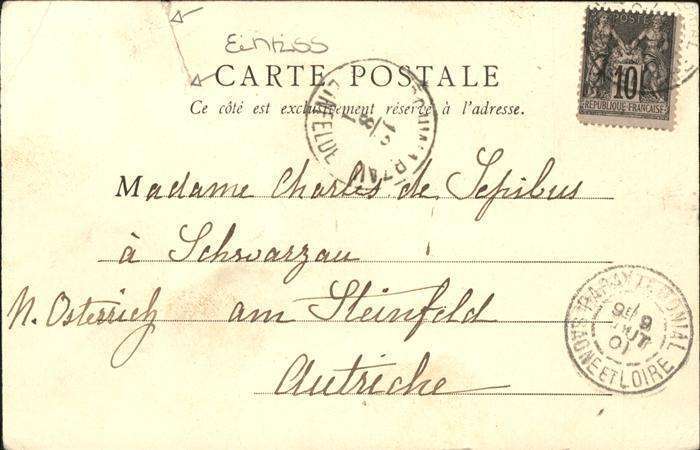 Einriss
POSTE
10
REPUBLIQUE FRANÇAISE
CARTE POSTALE
Ce côté est exclusivement réservé à l'adresse.
Madame Charles de Sepibus
à Schwarzau
N. Osterreich am Steinfeld
Autriche
PARAY LE MONIAL
9
OUT
01
SAONE ET LOIRE